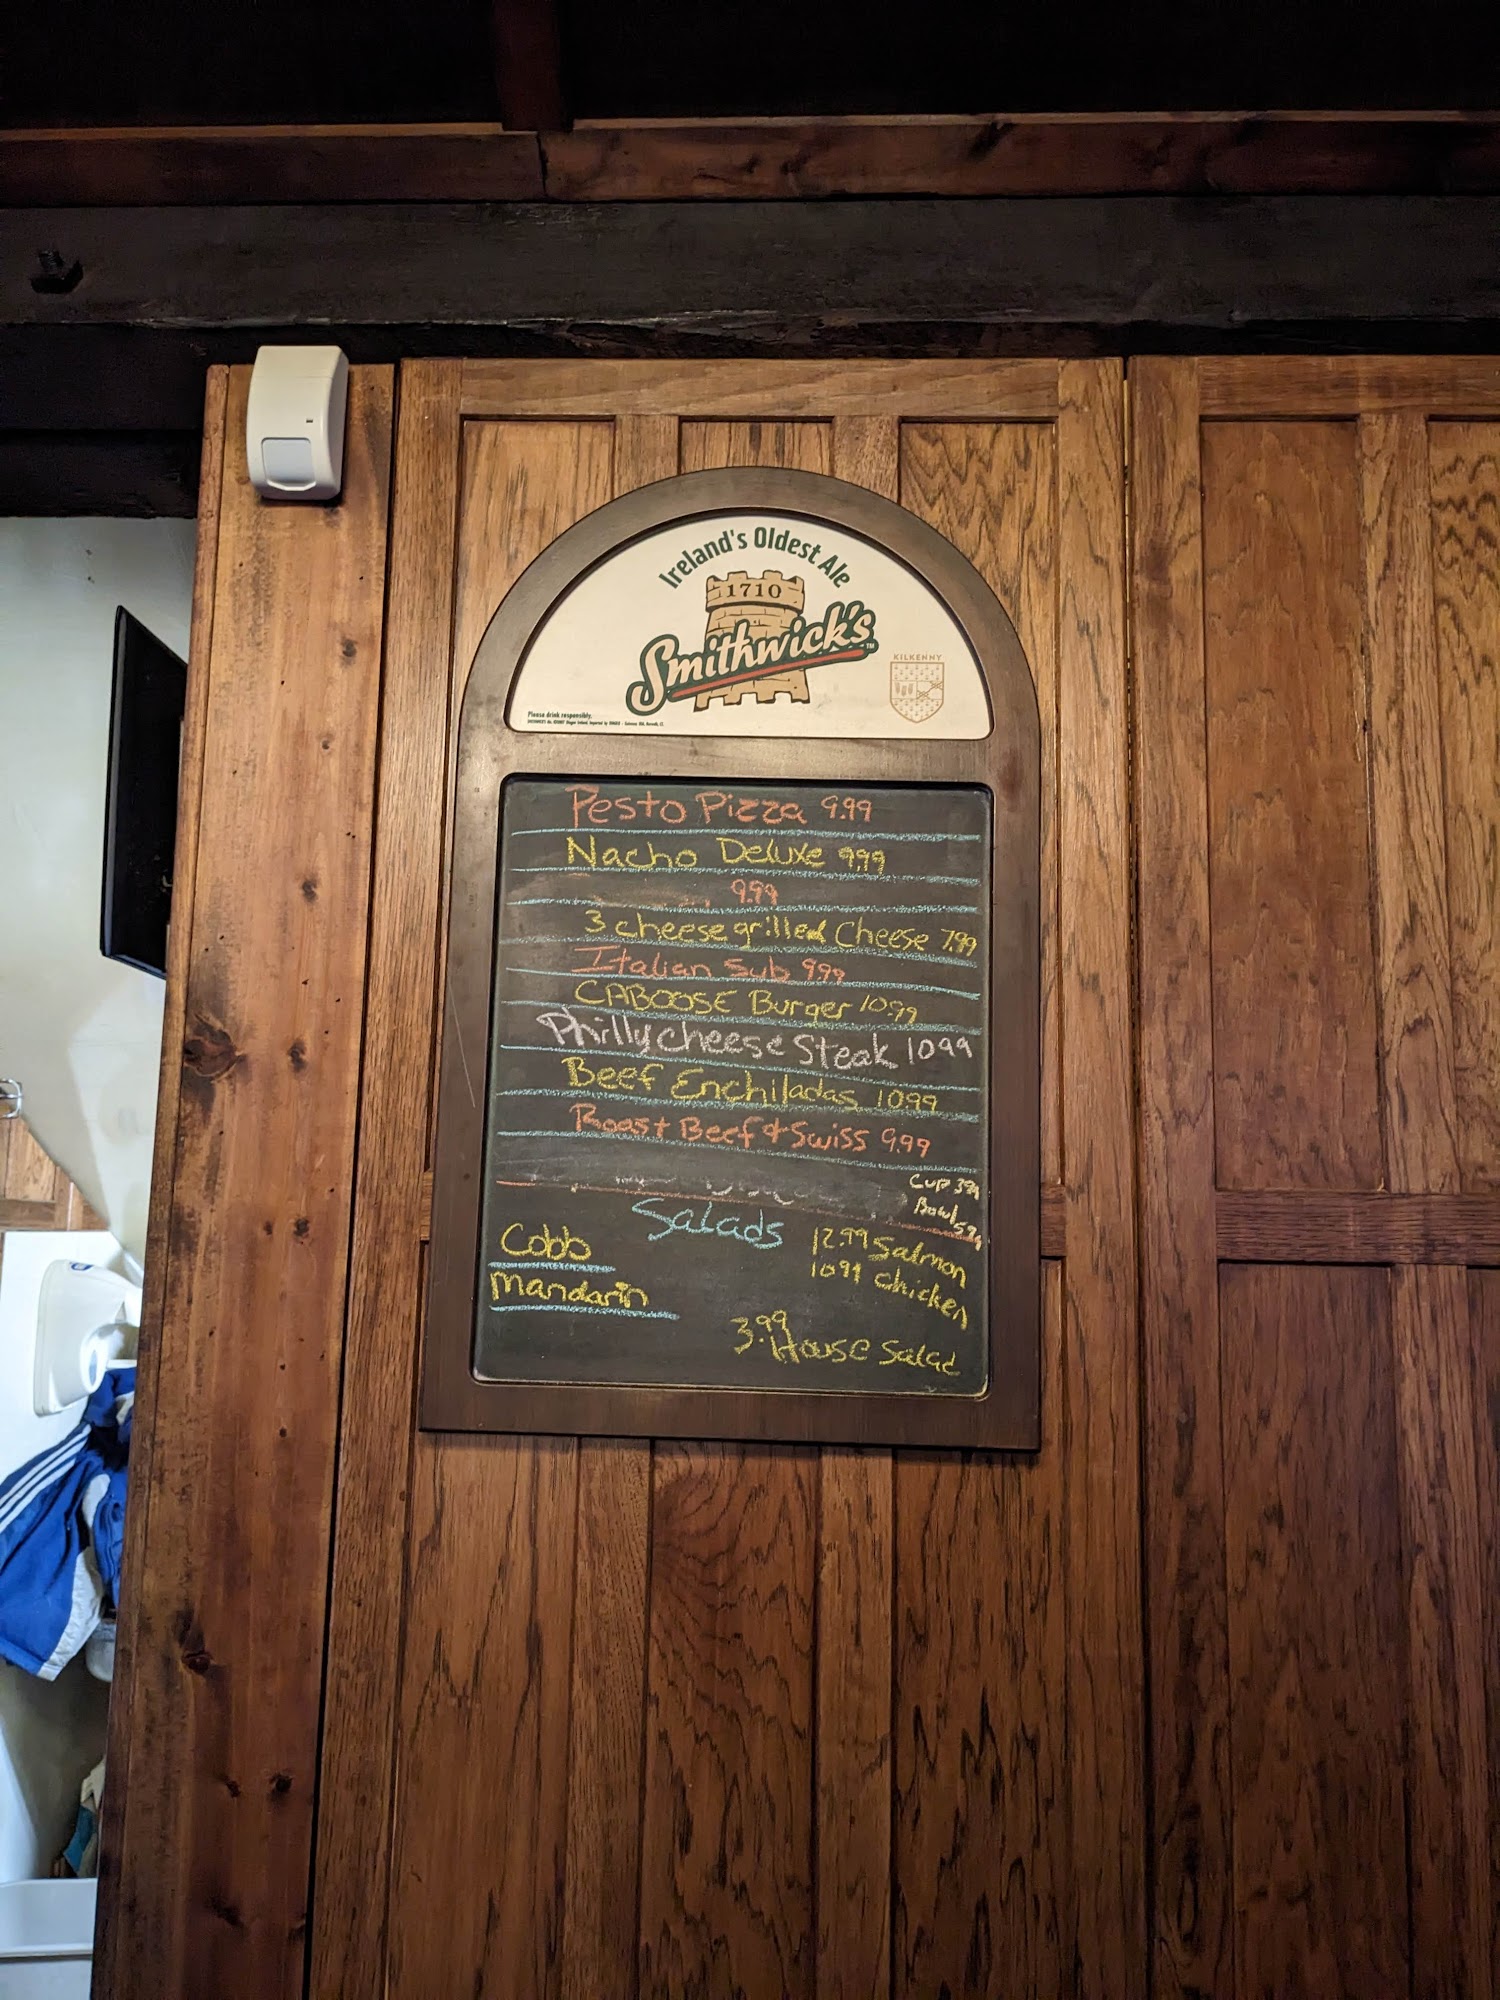 Ireland's Oldest Ale
1710
Smithwick's
KILKENNY
Please drink responsibly.
Pesto Pizza 9.99
Nacho Deluxe 9.99
9.99
3 cheese grilled Cheese 7.99
Italian Sub 999
CABOOSE Burger 10.99
Philly cheese Steak 1099
Beef Enchiladas 1099
Roast Beef & Swiss 9.99
Cup 399
Bowl 599
Salads
Cobb
12.99 Salmon
Mandarin
1099 chicken
3.99 House Salad